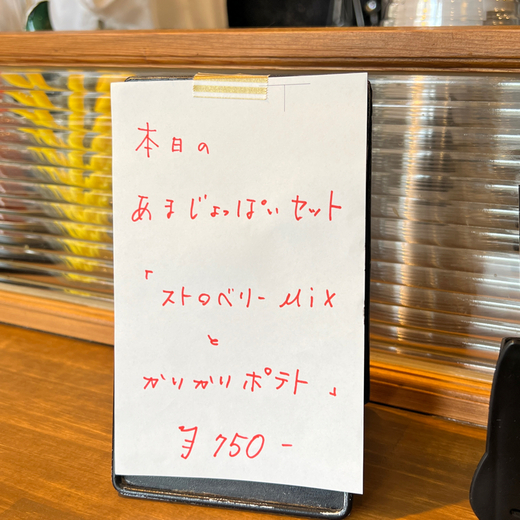 本日の
あまじょっぱいセット
「ストロベリーMix
と
かりかりポテト」
¥750-